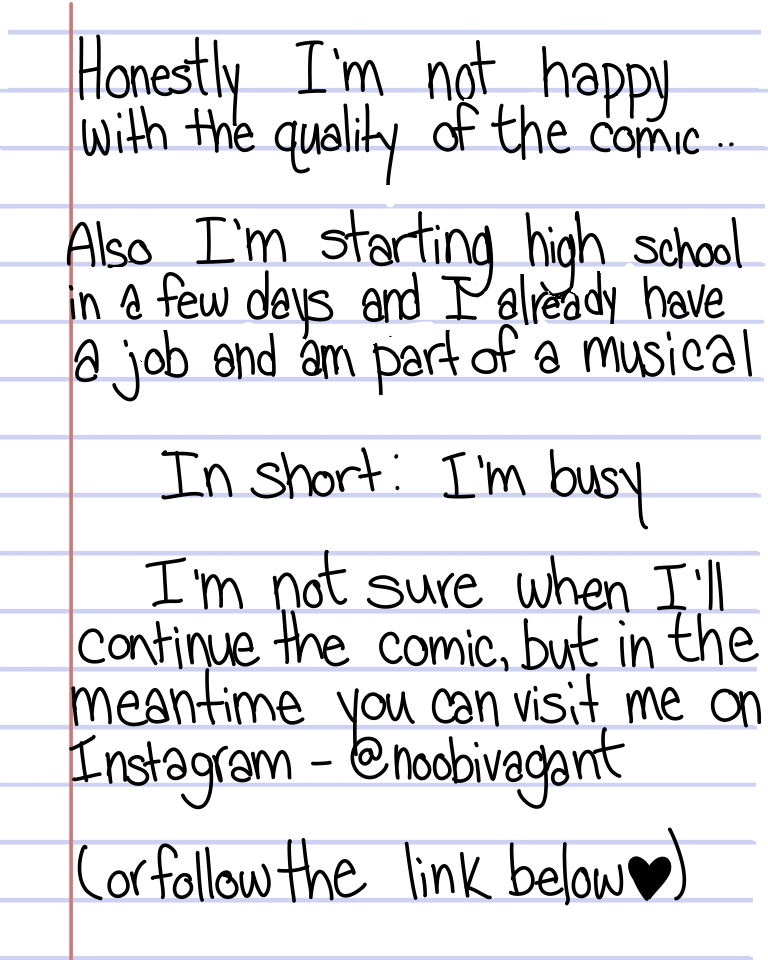 Honestly I'm not happy
with the quality of the comic..
Also I'm starting high school
in a few days and I already have
a job and am part of a musical
In short: I'm busy
I'm not sure when I'll
continue the comic, but in the
meantime you can visit me on
Instagram - @noobivagant
(or follow the link below♥)